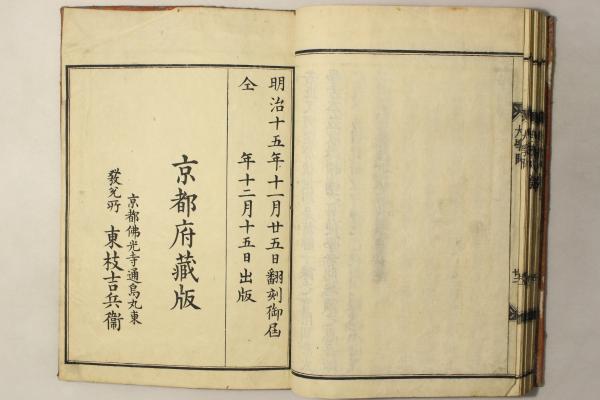 明治十五年十一月廿五日翻刻御届
仝年十二月十五日出版
京都府藏版
京都佛光寺通烏丸東
發兌所 東枝吉兵衞